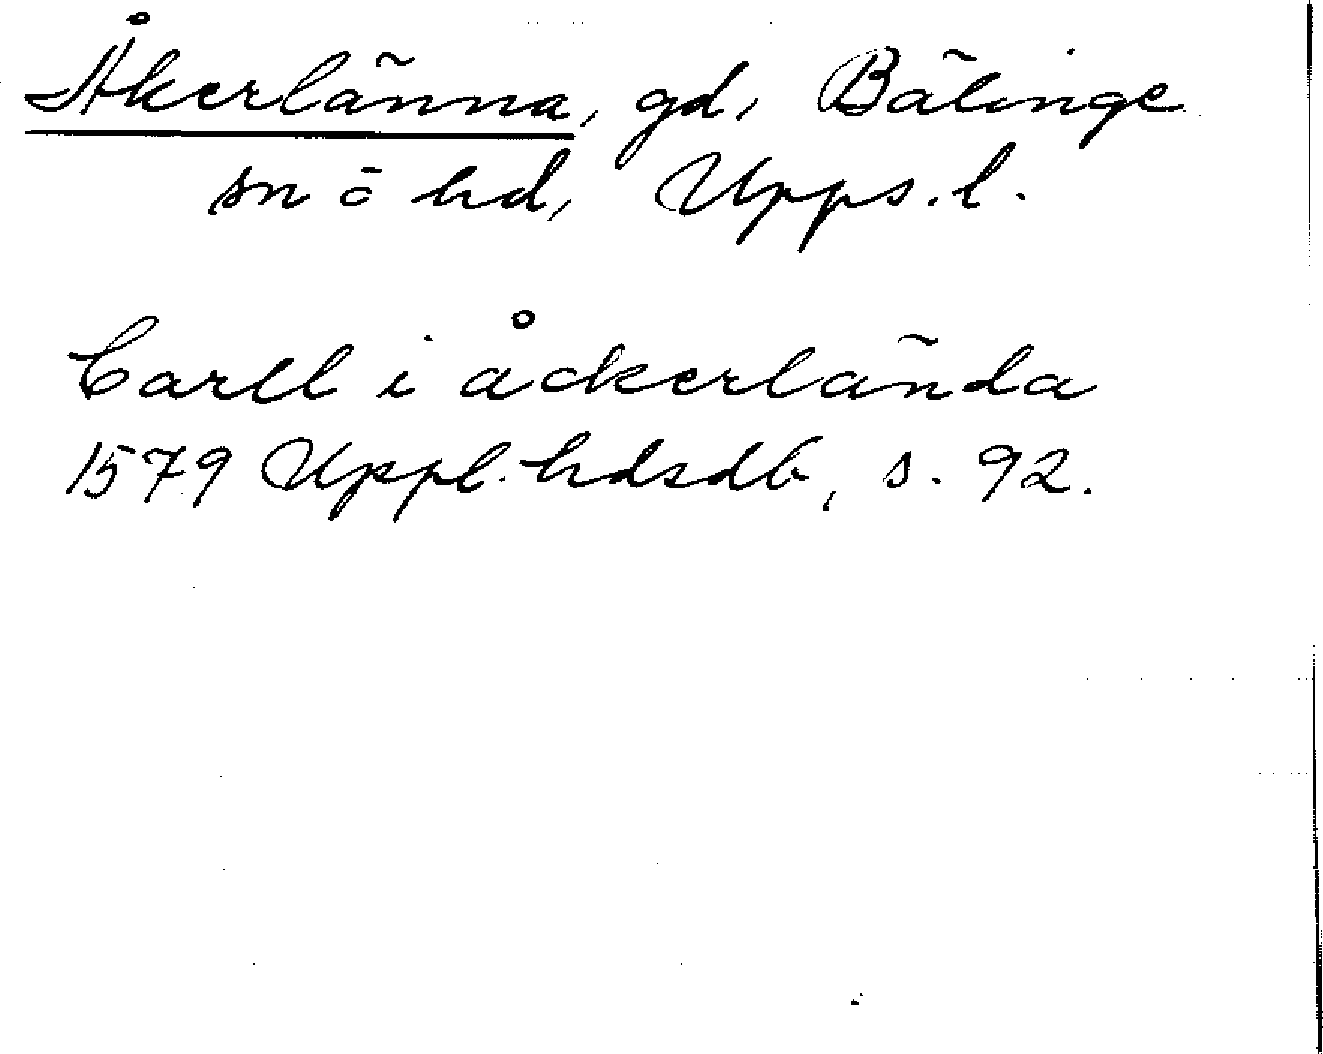 Åkerlänna, gd, Bälinge
sn ö hd, Upps. l.
Carll i åckerlända
1579 Uppl. hdsdb, s. 92.